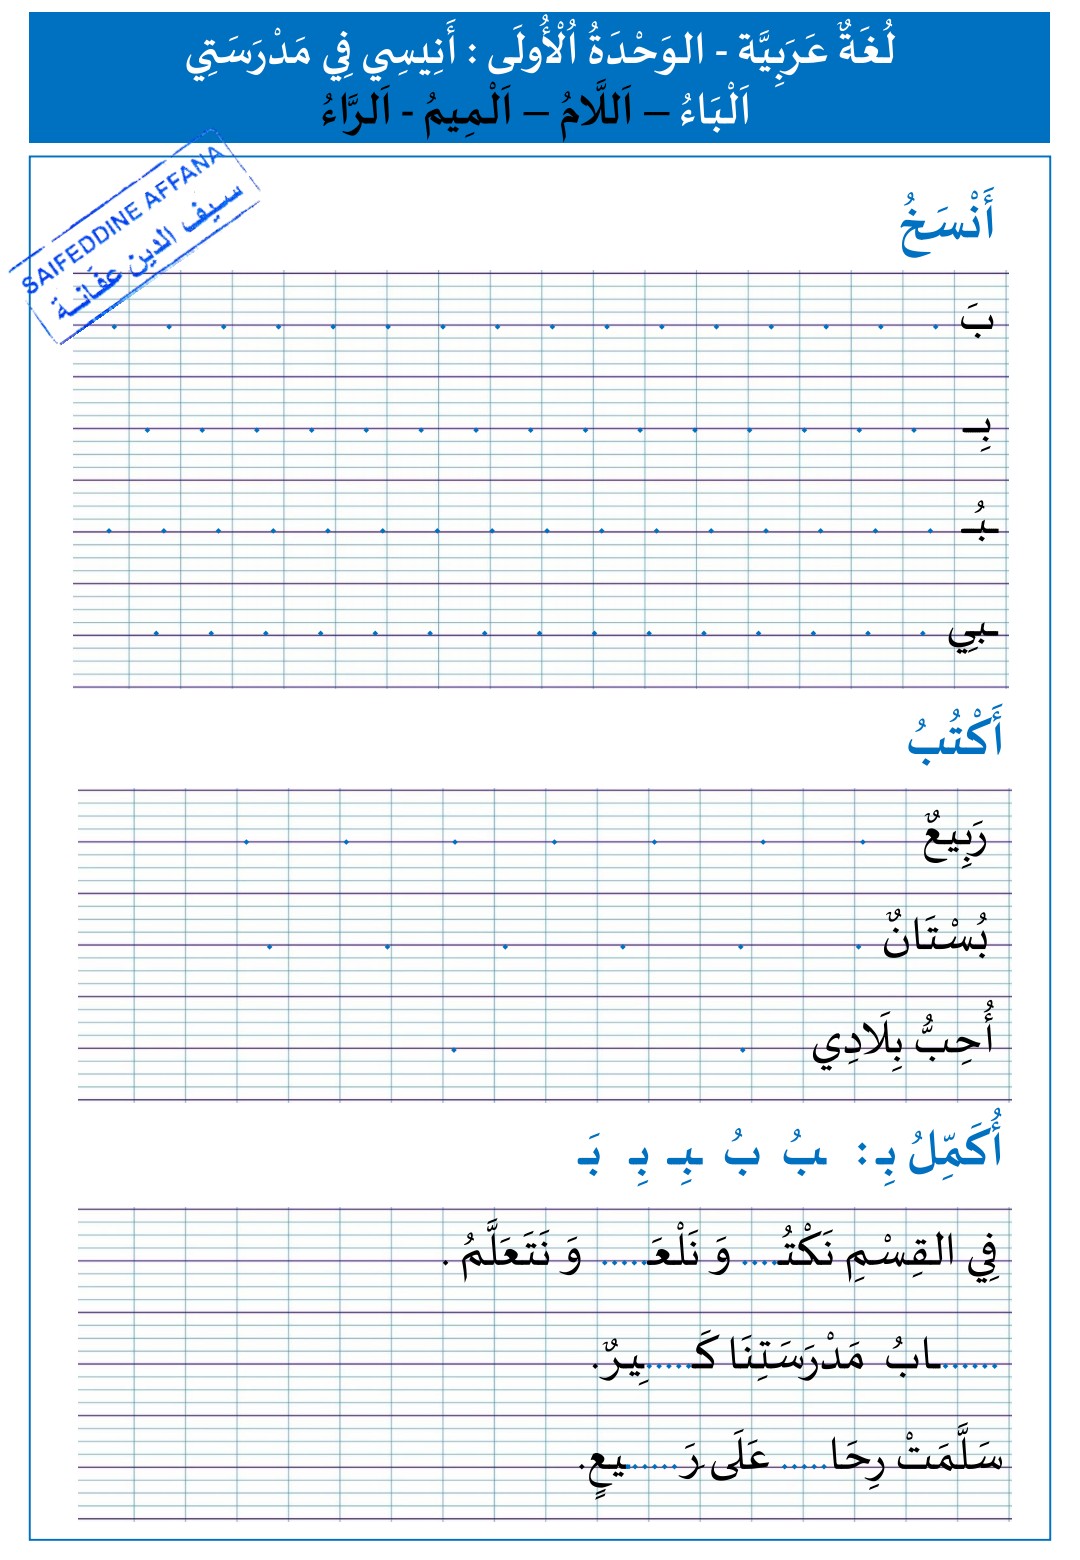 لُغَةٌ عَرَبِيَّة - الوَحْدَةُ اُلْأُولَى : أَنِيسِي فِي مَدْرَسَتِي
اَلْبَاءُ – اَللَّامُ – اَلْمِيمُ - اَلرَّاءُ
SAIFEDDINE AFFANA
سيف الدين عفانة
أَنْسَخُ
بَ
بِـ
ـبُـ
ـبِي
أَكْتُبُ
رَبِيعٌ
بُسْتَانٌ
أُحِبُّ بِلَادِي
أُكَمِّلُ بِـ : ـبُ بُ ـبِـ بِـ بَـ
فِي القِسْمِ نَكْتُـ.... وَ نَلْعَـ..... وَ نَتَعَلَّمُ .
......ـابُ مَدْرَسَتِنَا كَـ.....ـيِرٌ.
سَلَّمَتْ رِحَا..... عَلَى رَ......ـيعٍ.